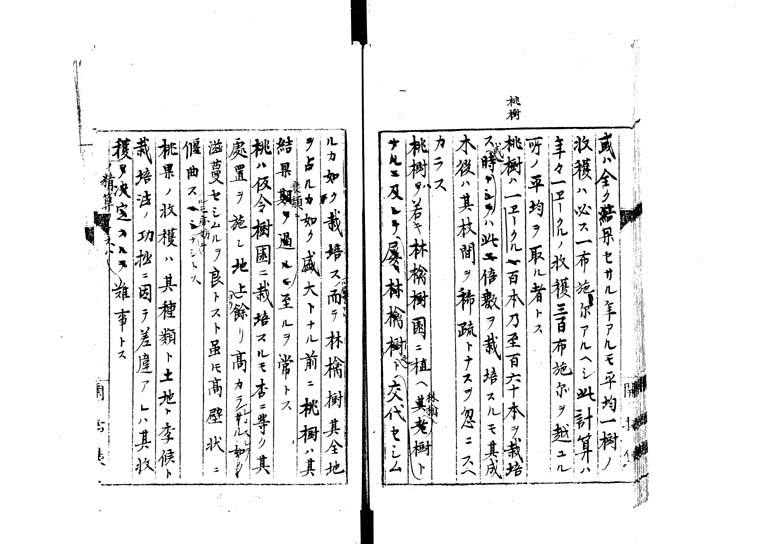 桃樹
或ハ全ク結果セサル年アルモ平均一樹ノ
收穫ハ必ス一布施尓アルヘシ此計算ハ
年々一ヱークルノ收穫三百布施尓ヲ越ユル
所ノ平均ヲ取ル者トス
桃樹ハ一ヱークル百本乃至百六十本ヲ栽培
ス時トシテハ此二倍数ヲ栽培スルモ其成
木後ハ其枝間ヲ稀疏トナスヲ忽ニスヘ
カラス
桃樹ヲ若キ林檎樹園ニ植ヘ其老樹ト
ナルニ及ヒテ屡林檎樹ト交代セシム
ルカ如ク栽培ス而ヲ林檎樹其全地
ヲ占ルカ如ク盛大トナル前ニ桃樹ハ其
結果期ヲ過ルニ至ルヲ常トス
桃ハ仮令樹園ニ栽培スルモ杏ニ等ク其
處置ヲ施シ地上餘リ高カラ如ク
滋蔓セシムルヲ良トスト虽モ高壁状ニ
偃曲ス
桃果ノ收穫ハ其種類ト土地ト季候ト
栽培法ノ功拙ニ因テ差違アレハ其收
穫ヲ精算難事トス